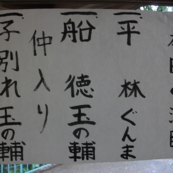 一平 林ぐんま
一船 徳玉の輔
仲入り
一子別れ玉の輔